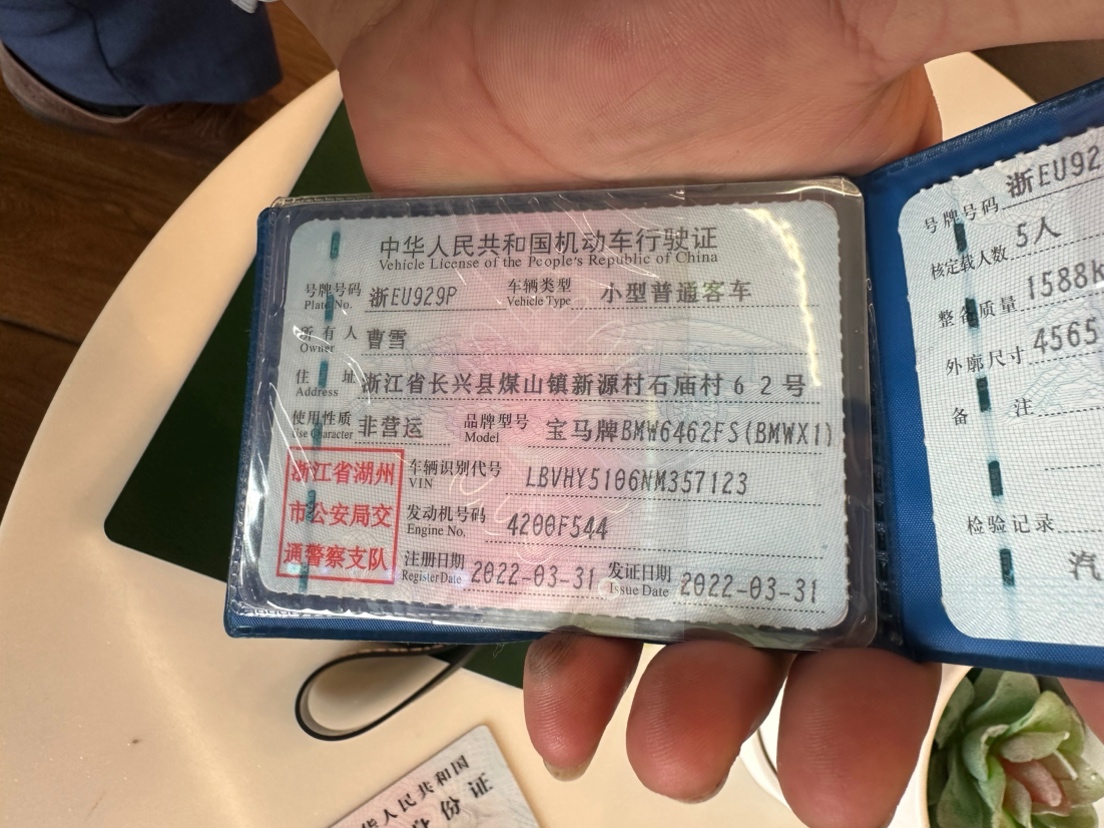 中华人民共和国机动车行驶证
Vehicle License of the People's Republic of China
号牌号码 浙EU929P 车辆类型 小型普通客车
Plate No. Vehicle Type
所有人 曹雪
Owner
住址 浙江省长兴县煤山镇新源村石庙村62号
Address
使用性质 非营运 品牌型号 宝马牌BMW6462FS(BMWX1)
Use Character Model
浙江省湖州
市公安局交
通警察支队
车辆识别代号 LBVHY5106NM357123
VIN
发动机号码 4200F544
Engine No.
注册日期 2022-03-31 发证日期 2022-03-31
Register Date Issue Date
号牌号码 浙EU92
核定载人数 5人
整备质量 1588k
外廓尺寸 4565
备注
检验记录
汽
华人民共和国
身份证